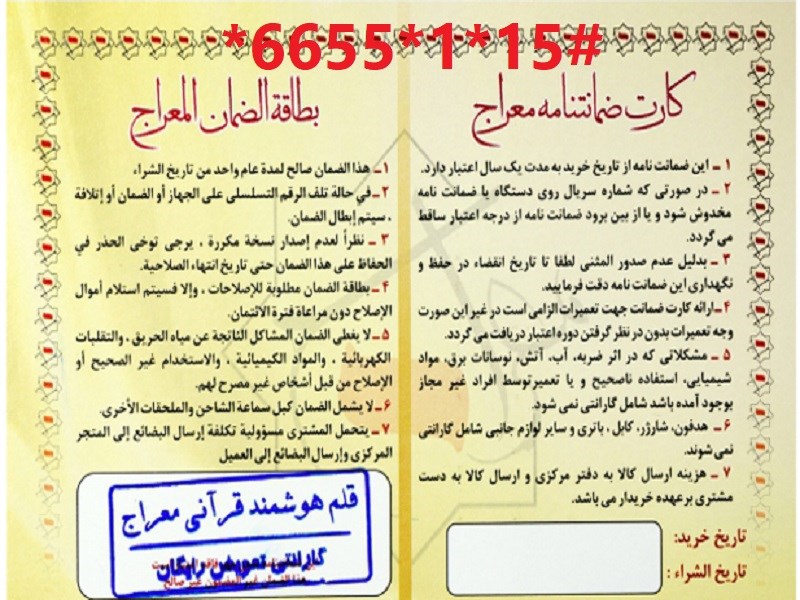 *6655*1*15#
کارت ضمانتنامه معراج
۱ - این ضمانت نامه از تاریخ خرید به مدت یک سال اعتبار دارد.
۲ - در صورتی که شماره سریال روی دستگاه یا ضمانت نامه
مخدوش شود و یا از بین برود ضمانت نامه از درجه اعتبار ساقط
می گردد.
۳ - بدلیل عدم صدور المثنی لطفا تا تاریخ انقضاء در حفظ و
نگهداری این ضمانت نامه دقت فرمایید.
۴ - ارائه کارت ضمانت جهت تعمیرات الزامی است در غیر این صورت
وجه تعمیرات بدون در نظر گرفتن دوره اعتبار دریافت می گردد.
۵ - مشکلاتی که در اثر ضربه، آب، آتش، نوسانات برق، مواد
شیمیایی، استفاده ناصحیح و یا تعمیر توسط افراد غیر مجاز
بوجود آمده باشد شامل گارانتی نمی شود.
۶ - هدفون، شارژر، کابل، باتری و سایر لوازم جانبی شامل گارانتی
نمی شوند.
۷ - هزینه ارسال کالا به دفتر مرکزی و ارسال کالا به دست
مشتری برعهده خریدار می باشد.
تاریخ خرید:
تاریخ الشراء :
بطاقة الضمان المعراج
۱ - هذا الضمان صالح لمدة عام واحد من تاریخ الشراء
۲ - في حالة تلف الرقم التسلسلی علی الجهاز أو الضمان أو إتلافة
، سیتم إبطال الضمان.
۳ - نظراً لعدم إصدار نسخة مکررة ، یرجی توخی الحذر في
الحفاظ علی هذا الضمان حتی تاریخ انتهاء الصلاحیة.
۴ - بطاقة الضمان مطلوبة للإصلاحات ، وإلا فسیتم استلام أموال
الإصلاح دون مراعاة فترة الائتمان.
۵ - لا یغطی الضمان المشاکل الناتجة عن میاه الحریق ، والتقلبات
الکهربائیة ، والمواد الکیمیائیة ، والاستخدام غیر الصحیح أو
الإصلاح من قبل أشخاص غیر مصرح لهم.
۶ - لا یشمل الضمان کبل سماعة الشاحن والملحقات الأخری.
۷ - یتحمل المشتری مسؤولیة تکلفة إرسال البضائع إلی المتجر
المرکزي وإرسال البضائع إلی العمیل
قلم هوشمند قرآنی معراج
گارانتی تعویض رایگان